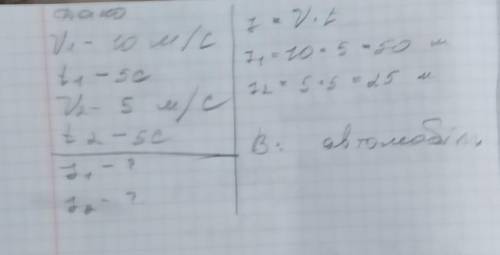 V₁ - 10 м/с
t₁ - 5с
V₂ - 5 м/с
t₂ - 5с
z₁ - ?
z₂ - ?
z = V · t
z₁ = 10 · 5 = 50 м
z₂ = 5 · 5 = 25 м
В: автомобіль